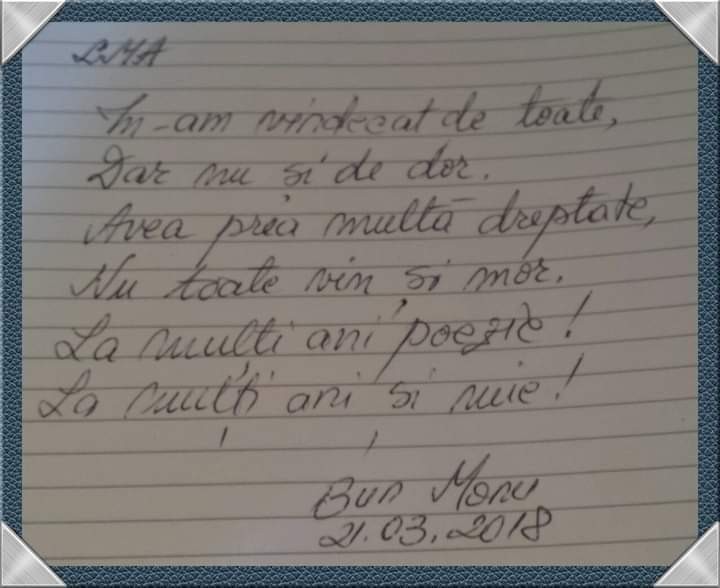 LMA
M-am vindecat de toate,
Dar nu și de dor.
Avea prea multă dreptate,
Nu toate vin și mor.
La mulți ani poezie!
La mulți ani și mie!
Bun Monu
21.03.2018